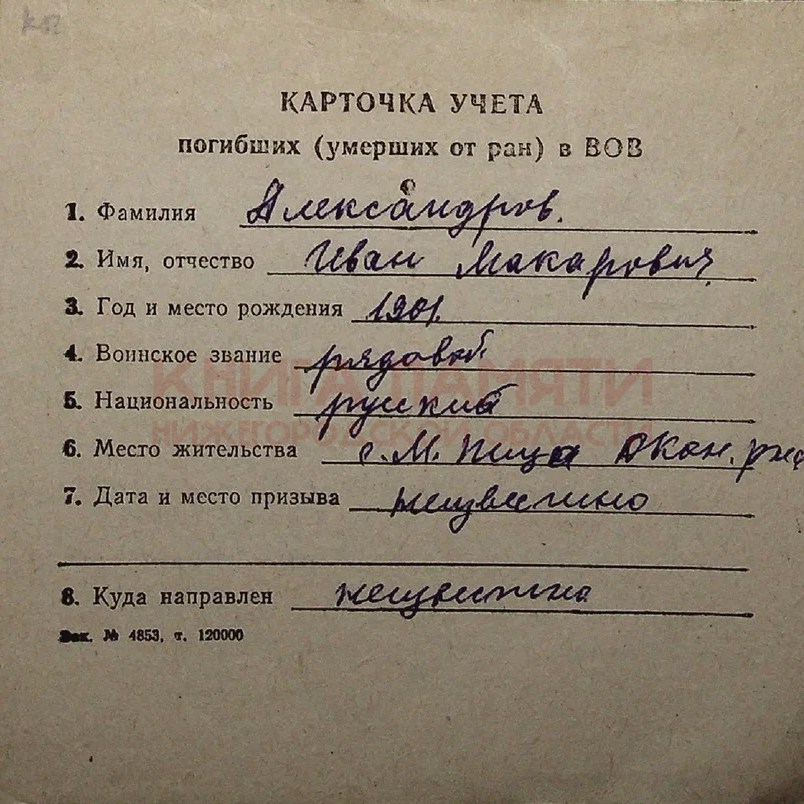 КАРТОЧКА УЧЕТА
погибших (умерших от ран) в ВОВ
1. Фамилия Александров.
2. Имя, отчество Иван Макарович
3. Год и место рождения 1901.
4. Воинское звание рядовой
КНИГА ПАМЯТИ
5. Национальность русский
НИЖЕГОРОДСКОЙ ОБЛАСТИ
6. Место жительства с. М. Пица Дкон.
7. Дата и место призыва неизвестно
8. Куда направлен неизвестно
Зак. № 4853, т. 120000